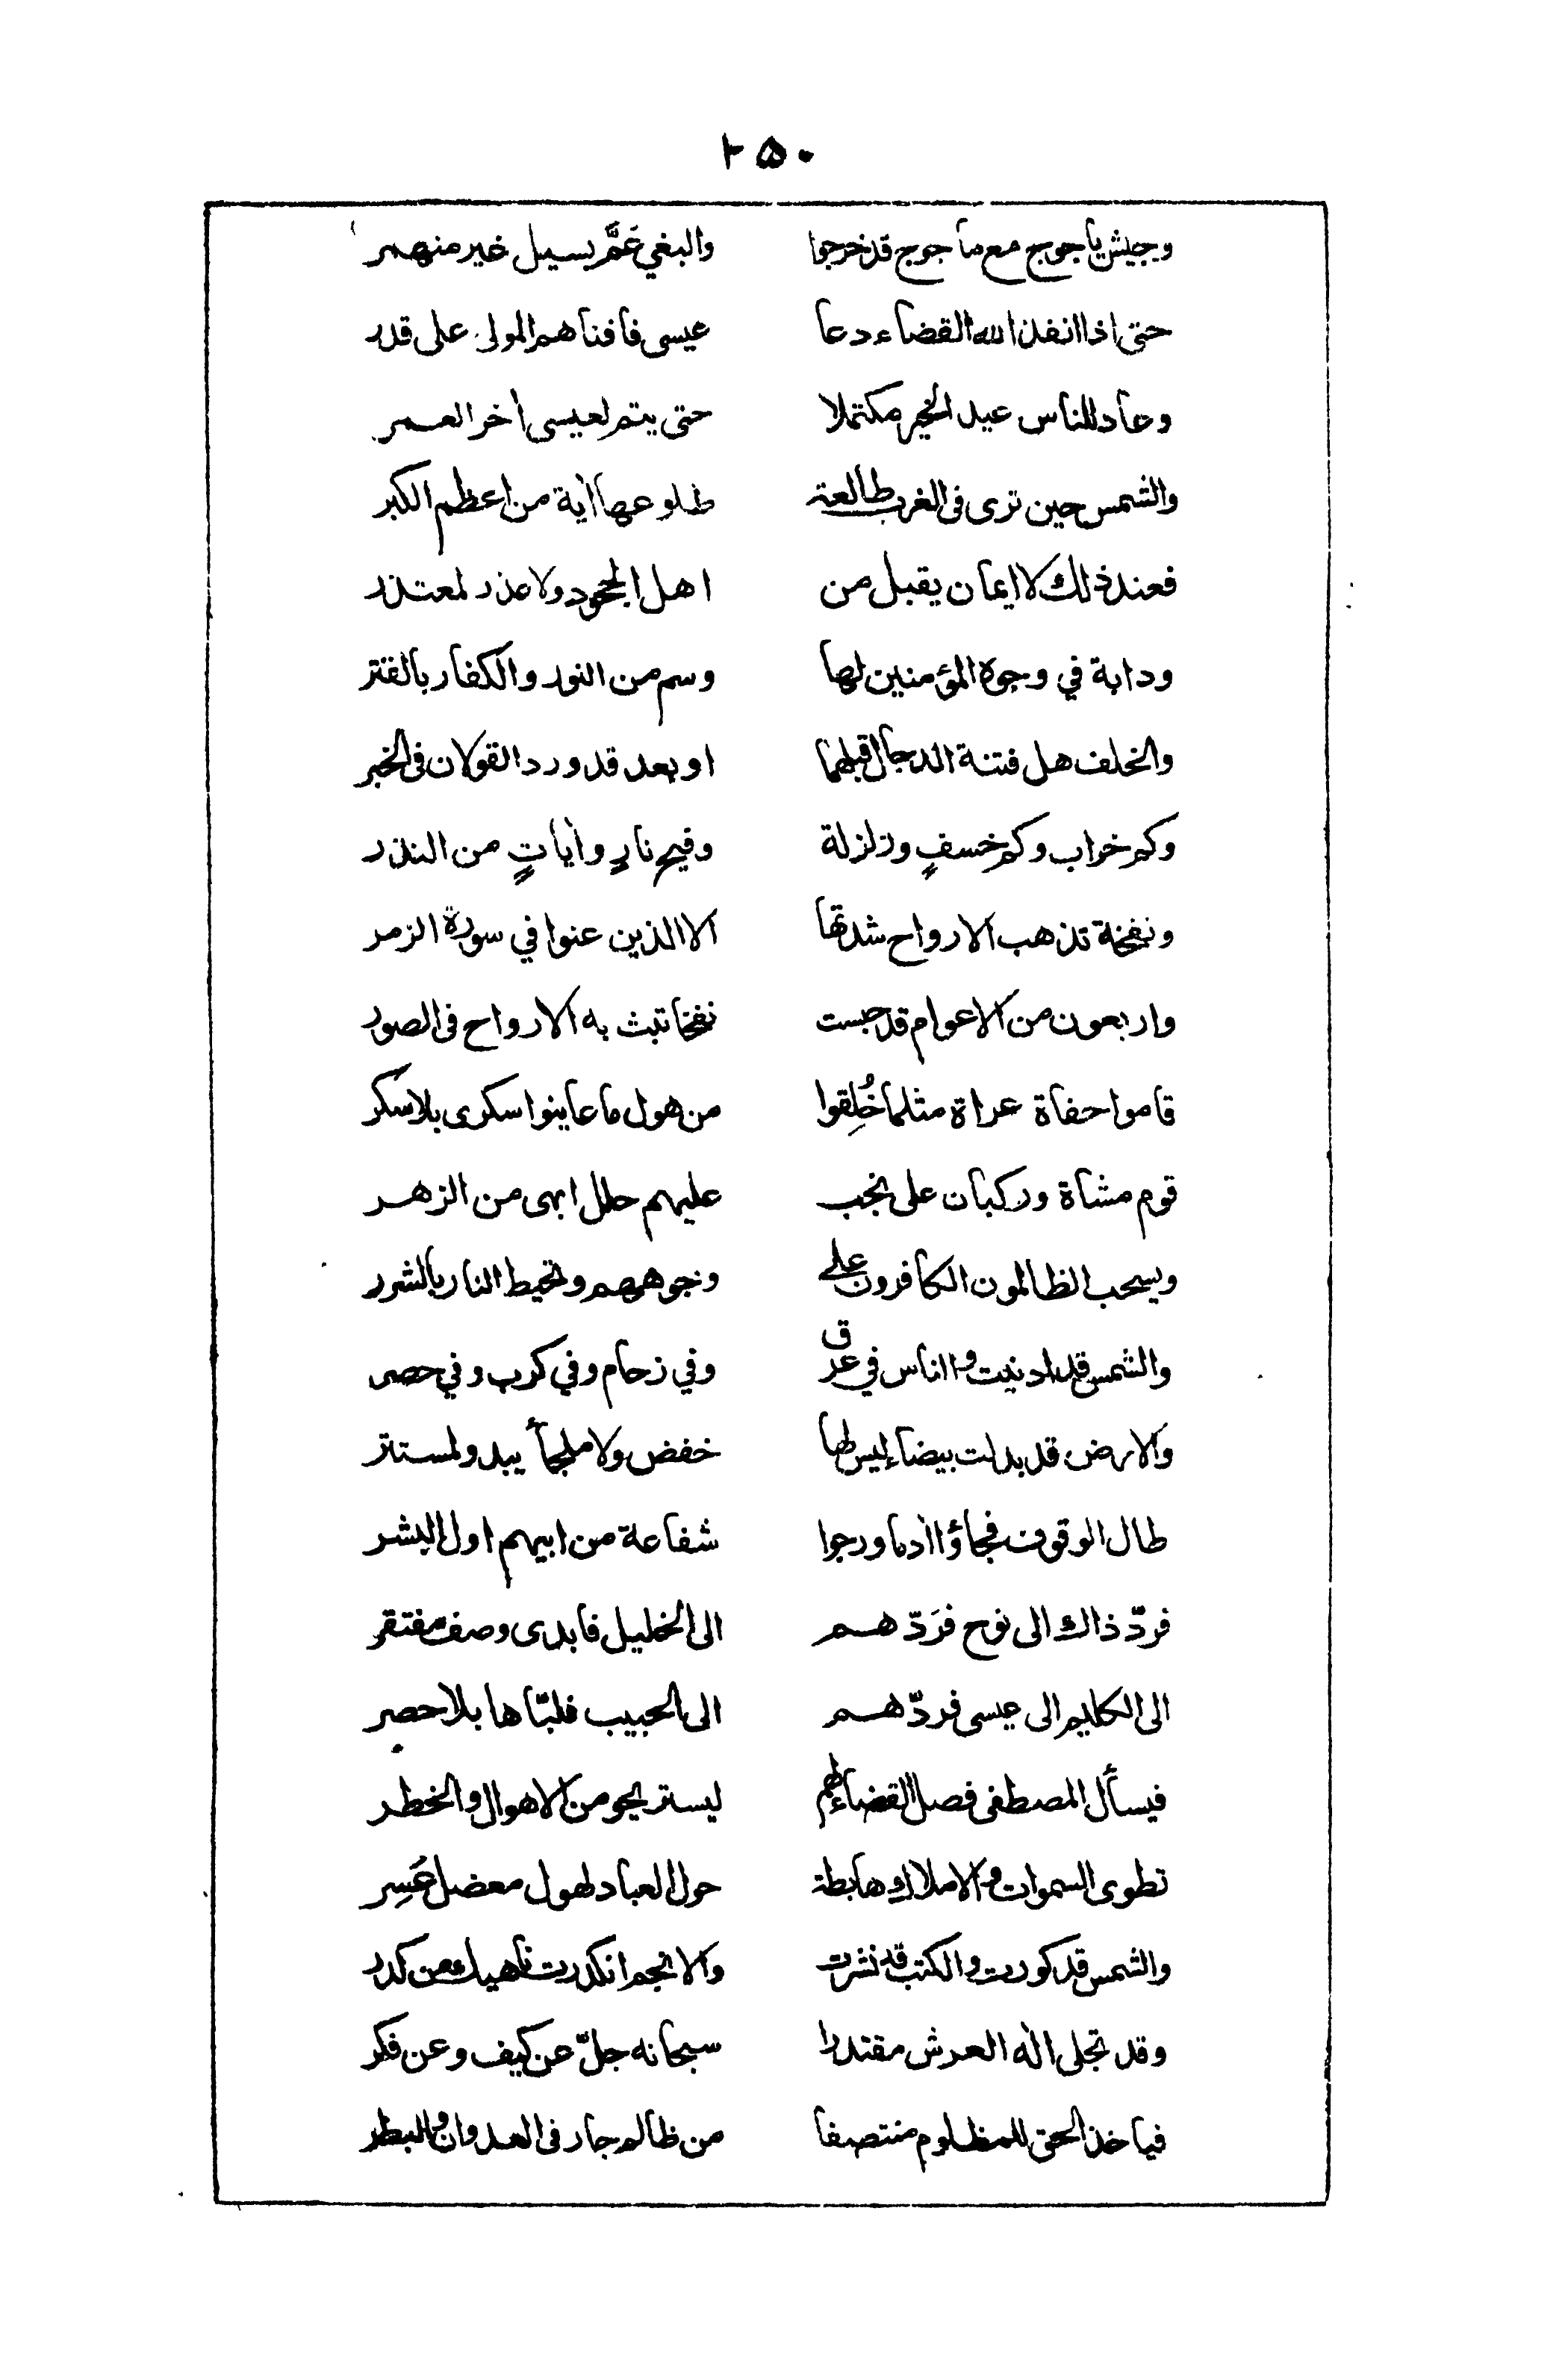 ٢٥٠
وجيش ياجوج مع ماجوج قد خرجوا والبغي عَمَّ بسيل غير منهمر
حتى اذا انفذ الله القضاء دعا عيسى فافناهم المولى على قدر
وعاد للناس عيد الخير مكتملا حتى يتم لعيسى أخر العمر
والشمس حين ترى فى الغرب طالعة طلوعها أية من اعظم الكبر
فعند ذلك لا ايمان يقبل من اهل الجحود ولا عذر لمعتذر
ودابة في وجوه المؤمنين لها وسم من النور والكفار بالقتر
والخلف هل فتنة الدجال قبلهما او بعد قد ورد القولان فى الخبر
وكم خراب وكم خسفٍ وزلزلة وفيح نارٍ وأياتٍ من النذر
ونفخة تذهب الارواح شدتها الا الذين عنوا في سورة الزمر
واربعون من الاعوام قد حبست نفخا تبث به الارواح فى الصور
قاموا حفاة عراة مثلما خُلِقوا من هول ما عاينوا سكرى بلا سكر
قوم مشاة وركبان على نجب عليهم حلل ابهى من الزهر
ويسحب الظالمون الكافرون على وجوههم وتحيط النار بالشرر
والشمس قد ادنيت والناس في عرق وفي زحام وفي كرب وفي حصر
والارض قد بدلت بيضاء ليس لها خفض ولا ملجأ يبدو لمستتر
طال الوقوف فجاؤا أدما ورجوا شفاعة من ابيهم اول البشر
فردّ ذاك الى نوح فرَدّهم الى الخليل فابدى وصف مفتقر
الى الكليم الى عيسى فردّهم الى الحبيب فلبّاها بلا حصر
فيسأل المصطفى فصل القضاء لهم ليستريحو من الاهوال والخطر
تطوى السموات والاملاك هابطة حول العباد لهول معضل عَسِر
والشمس قد كورت والكتب قد نشرت والانجم انكدرت ناهيك من كدر
وقد تجلى اله العرش مقتدرا سبحانه جلّ عن كيف وعن فكر
فياخذ الحق للمظلوم منتصفا من ظالم جار فى العدوان والبطر